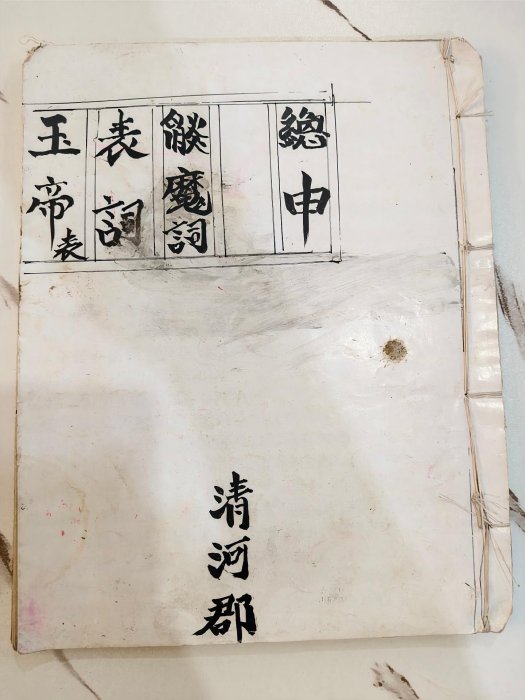 總申
燄魔詞
表詞
玉帝表
清河郡